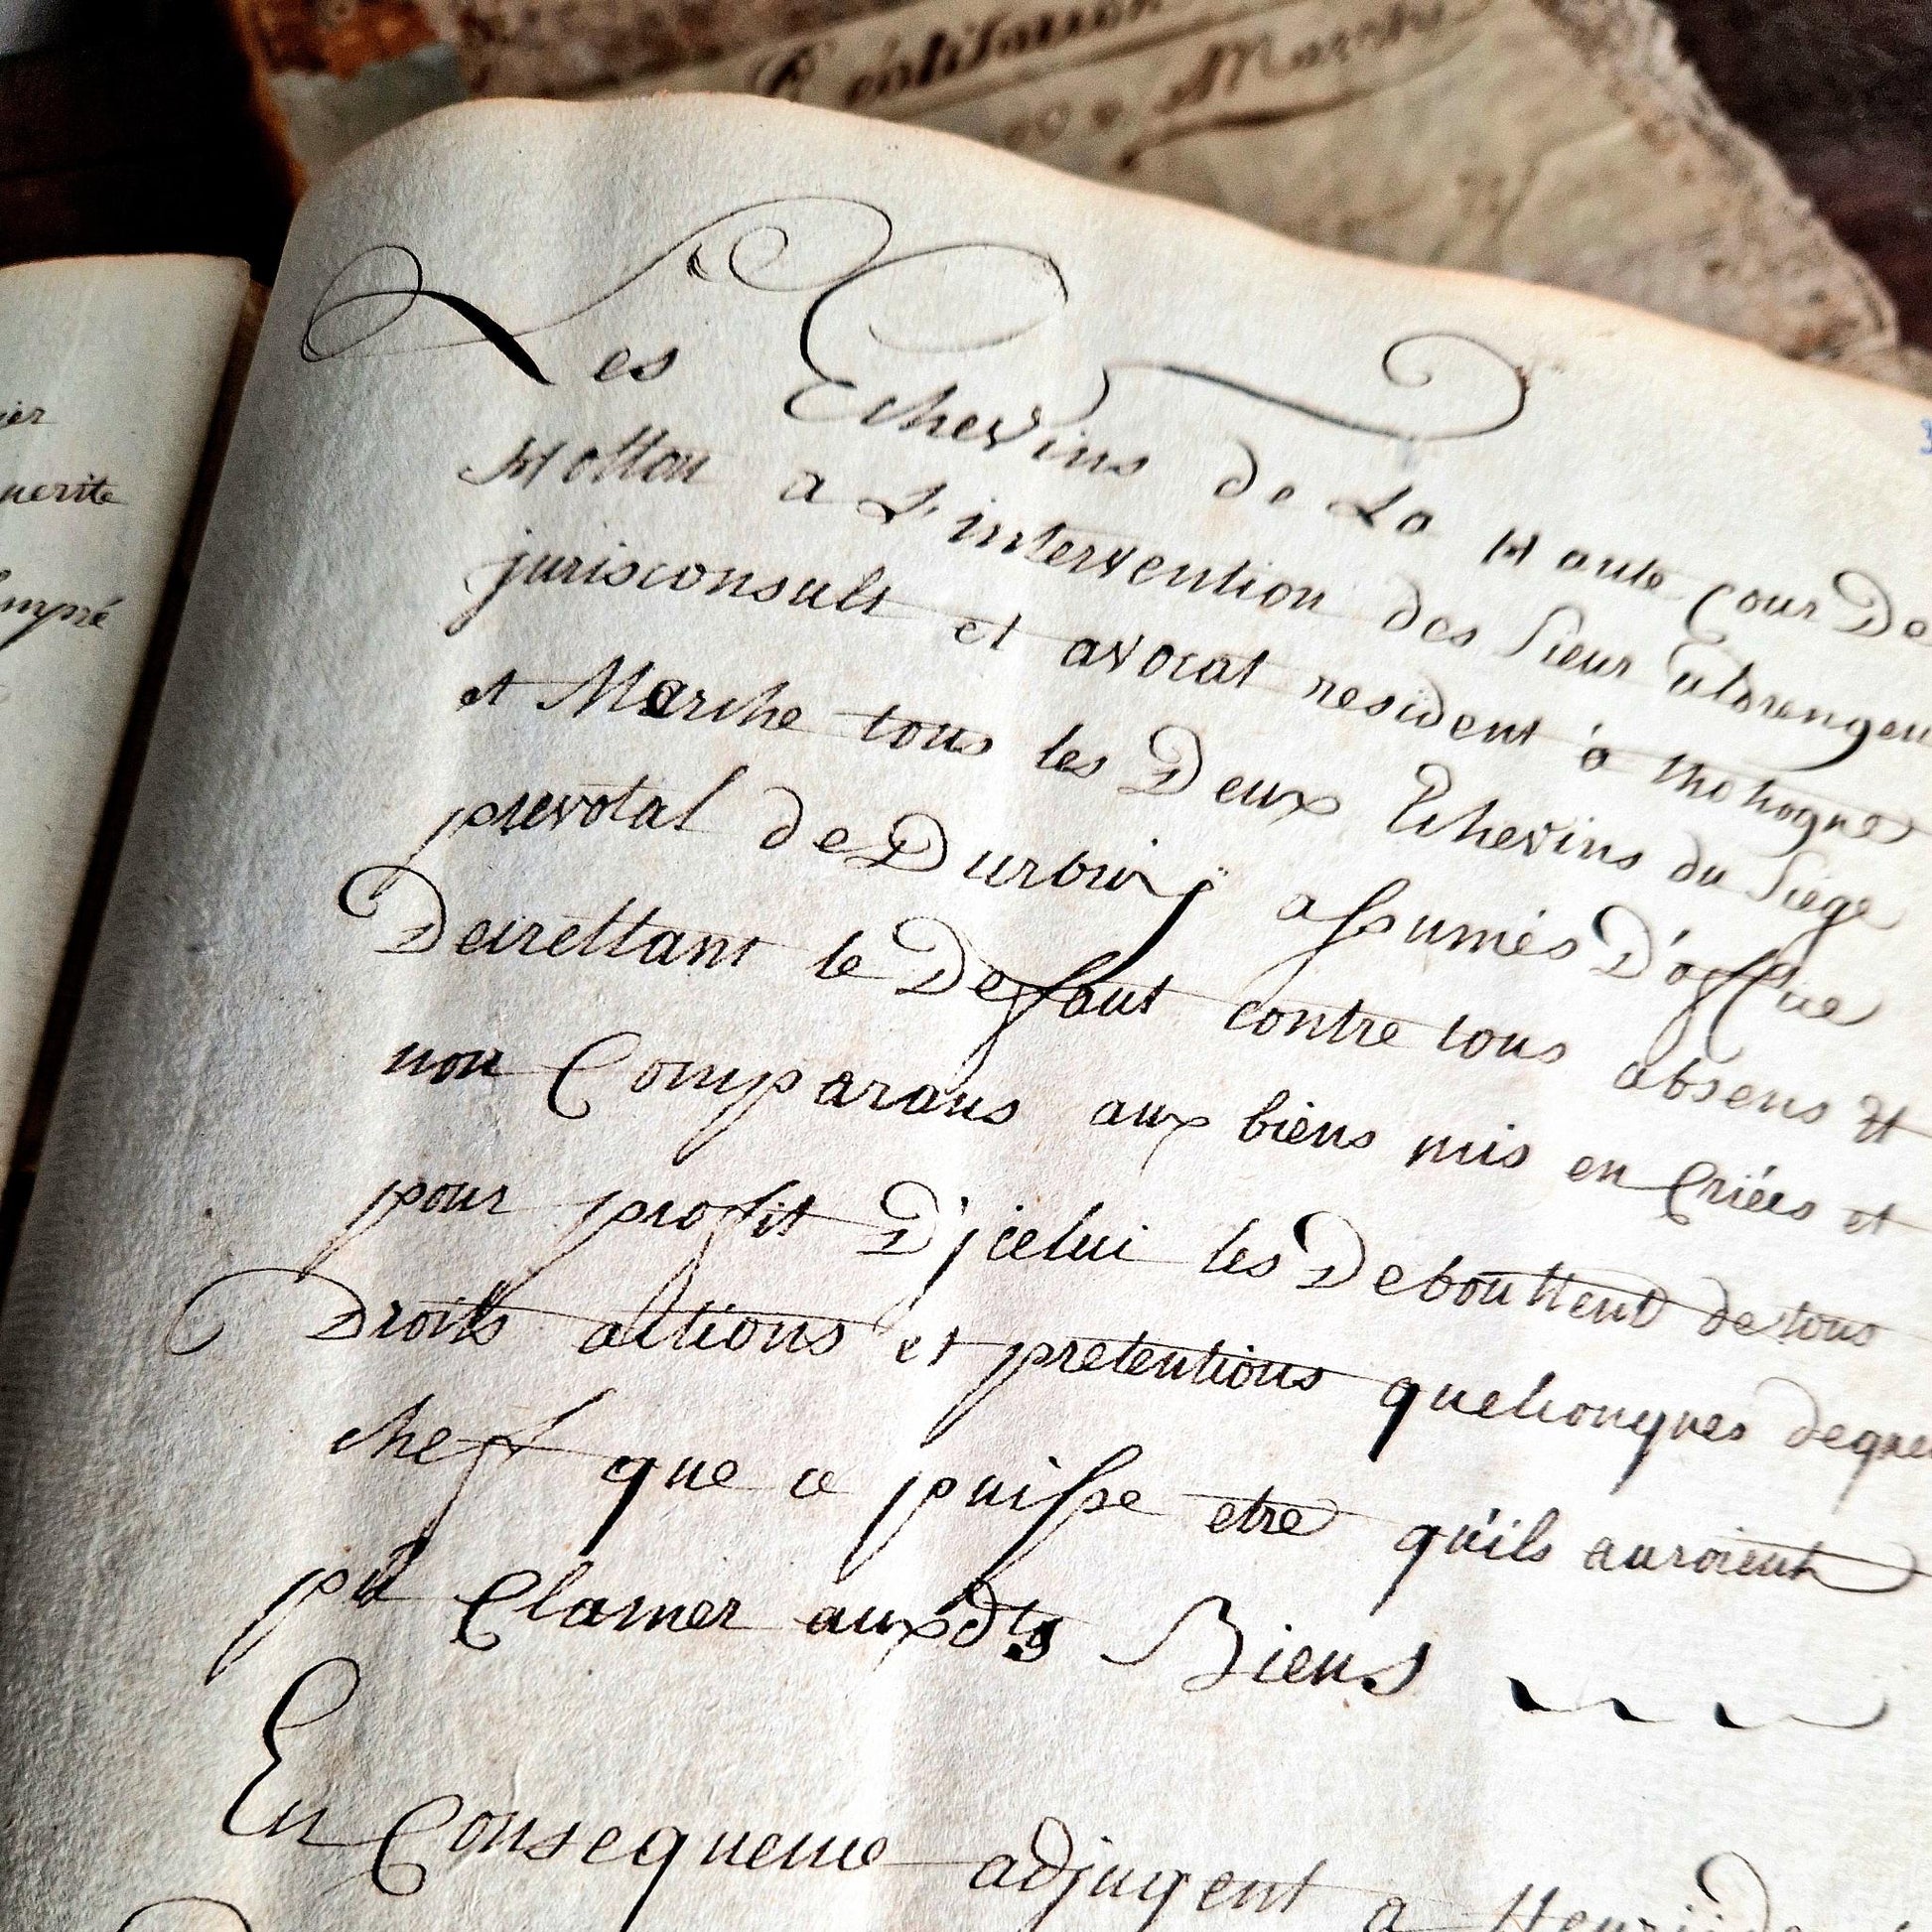 Marche
ier
uerite
Les Echevins de La Haute Cour De
Hotton a L'intervention des Sieur
jurisconsult et avocat resident à thohogne
et Marche tous les Deux Echevins du Siége
prevotal de Durbuÿ assumés D'office
Decrettant le Deffaut contre tous absens et
non Comparans aux biens mis en Criées et
pour profit D'jcelui les Debouttent de tous
Droits actions et pretentions quelconques de quel
cheff que ce puisse etre qu'ils auroient
pû Clamer aux dts Biens
En Consequence adjugent a Henri